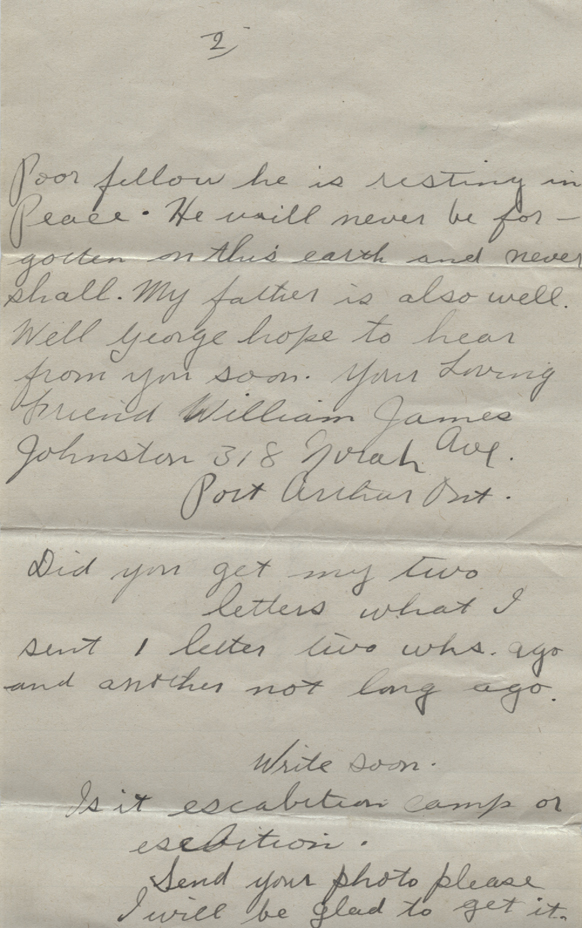 2
Poor fellow he is resting in
Peace. He will never be for-
gotten on this earth and never
shall. My father is also well.
Well George hope to hear
from you soon. Your Loving
Friend William James
Johnston 318 Norah Ave.
Port Arthur Ont.
Did you get my two
letters what I
sent 1 letter two whs. ago
and another not long ago.
Write soon.
Is it escabition camp or
escbition.
Send your photo please
I will be glad to get it.